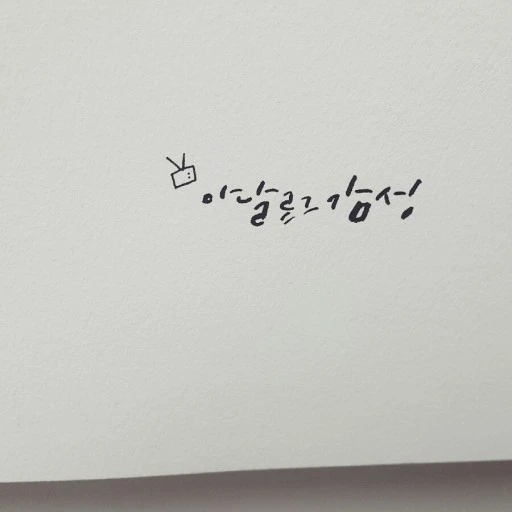 아날로그 감성